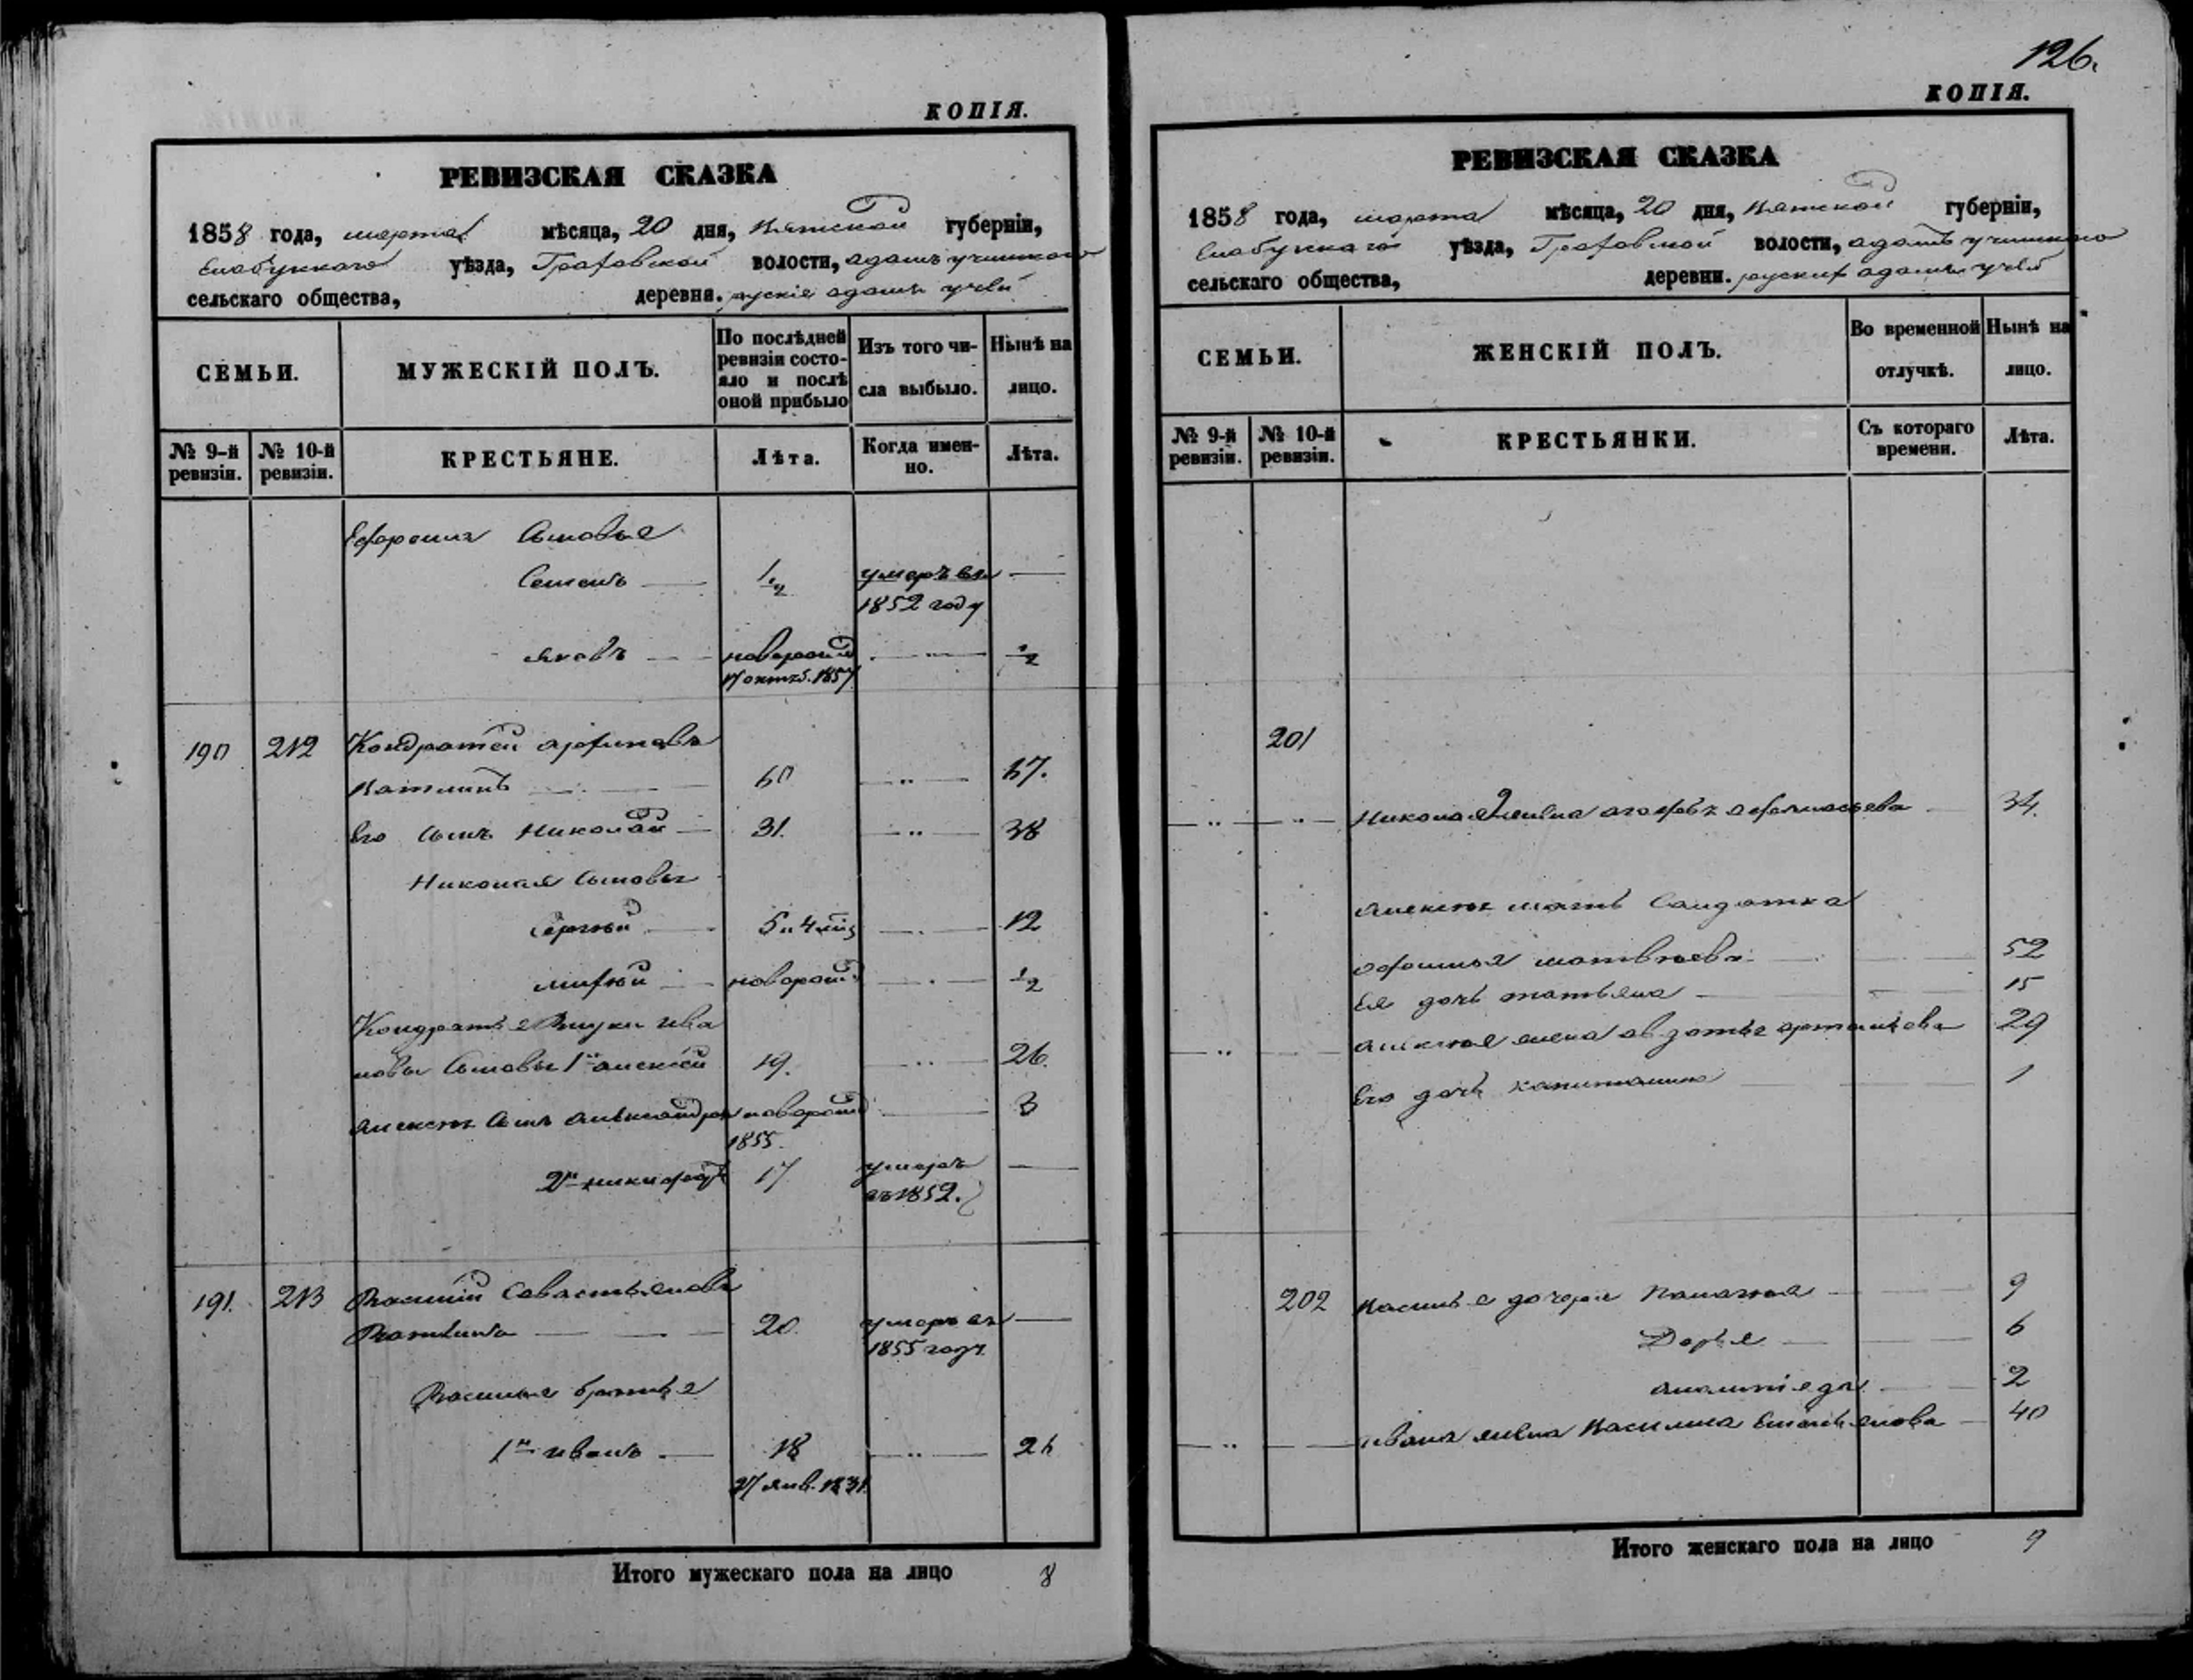 КОПІЯ.
РЕВИЗСКАЯ СКАЗКА
1858 года, марта мѣсяца, 20 дня, Вятской губерніи,
Елабужскаго уѣзда, Граховской волости, адамъ учинскаго
сельскаго общества, деревни. рускіе адамъ учеи
СЕМЬИ.
МУЖЕСКІЙ ПОЛЪ.
По послѣдней ревизіи состо-
яло и послѣ
оной прибыло
Изъ того чи-
сла выбыло.
Нынѣ на
лицо.
№ 9-й ревизіи.
№ 10-й ревизіи.
КРЕСТЬЯНЕ.
Лѣта.
Когда имен-
но.
Лѣта.
Сыновья
Семенъ 1/2 умеръ въ
1852 году
яковъ новорожд 1/2
17 октяб. 1857
190 212 Кондратей
60 67.
Его сынъ Николай 31. 38
Николая сыновья
Сергѣй 5 и 4 мѣс 12
новорожд 1/2
Кондратья внуки ива
новы сыновья 1й алексѣй 19. 26.
алексѣя сынъ александръ новорожд 3
1855.
2й никифоръ 17 умеръ
въ 1852.
191. 213 Василий Севастьяновъ
20. умеръ въ
1855 году
Василья братья
1й иванъ 18 26
27 янв. 1831.
Итого мужескаго пола на лицо 8
126.
КОПІЯ.
РЕВИЗСКАЯ СКАЗКА
1858 года, марта мѣсяца, 20 дня, Вятской губерніи,
Елабужскаго уѣзда, Граховской волости, адамъ учинскаго
сельскаго общества, деревни. рускихъ адамъ учеи
СЕМЬИ.
ЖЕНСКІЙ ПОЛЪ.
Во временной
отлучкѣ.
Нынѣ на
лицо.
№ 9-й ревизіи.
№ 10-й ревизіи.
КРЕСТЬЯНКИ.
Съ котораго
времени.
Лѣта.
201
Николая жена 34.
алексѣя мать Солдатка
матвѣева 52
Ея дочь татьяна 15
алексѣя жена 29
Его дочь капитолина 1
202 Василья дочери Палагѣя 9
Дарья 6
2
ивана жена Василиса Емельянова 40
Итого женскаго пола на лицо 9